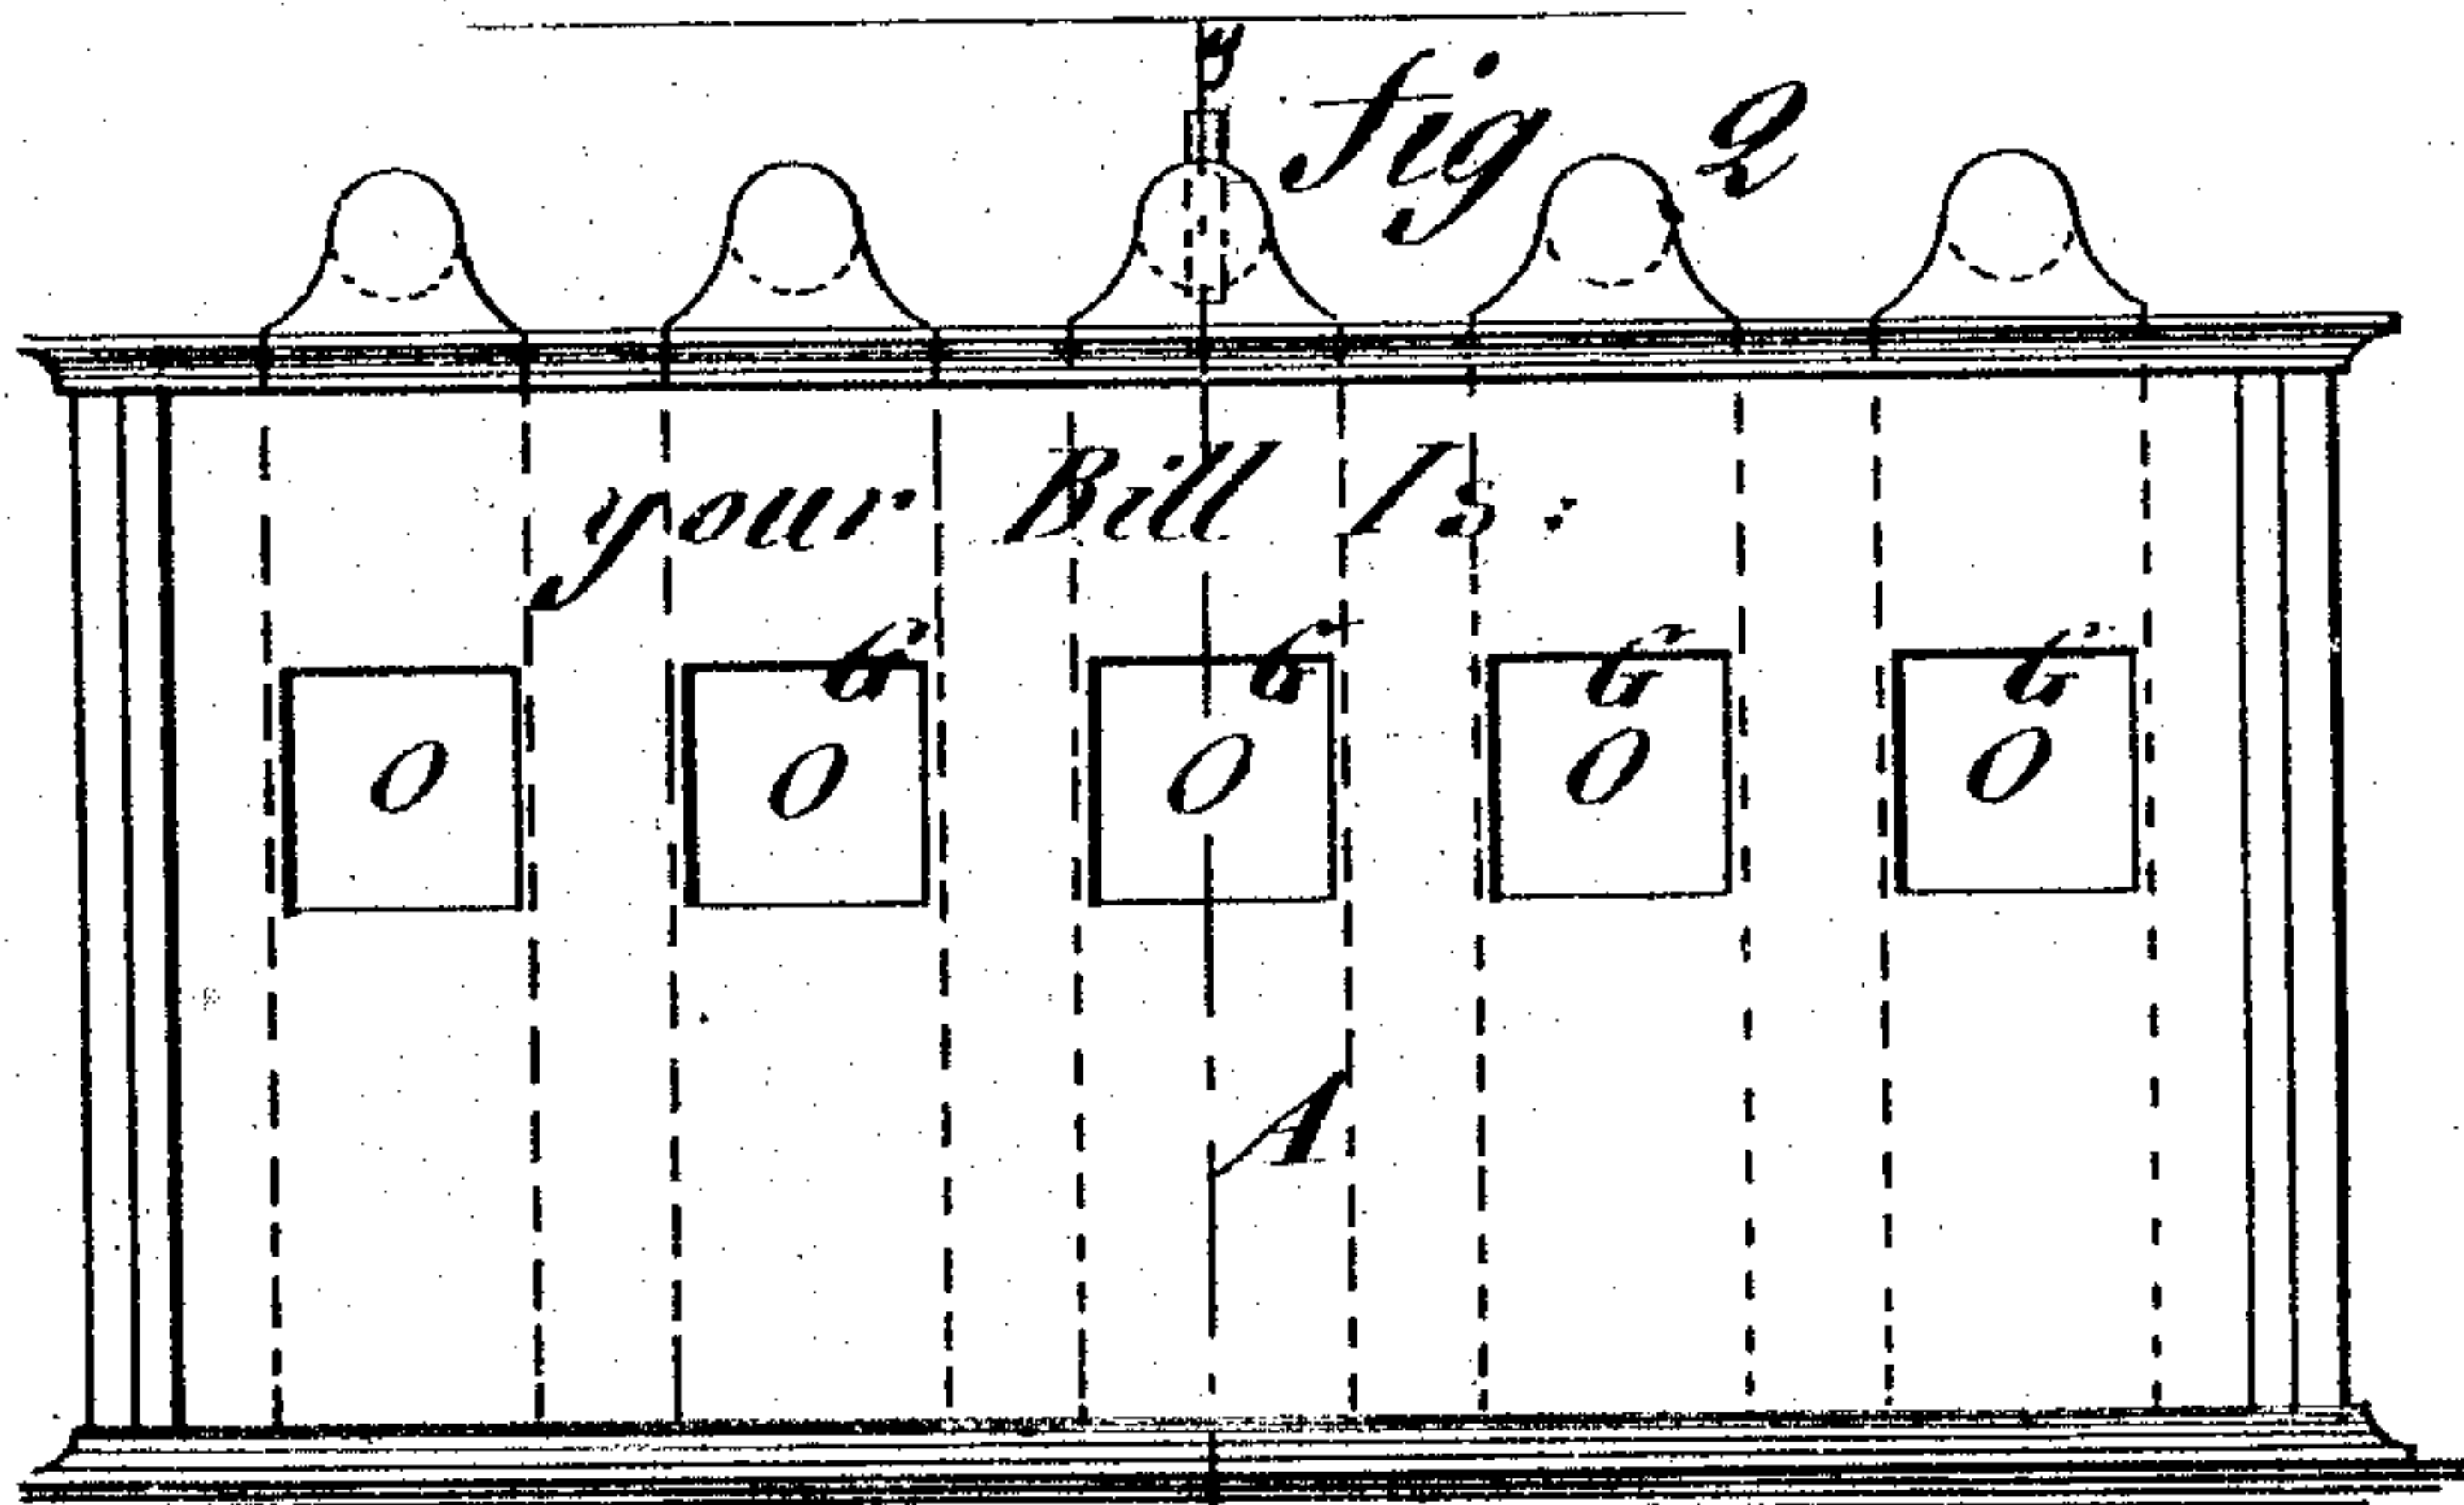 y
Fig 2
your Bill Is:
b' b+ b² b
0 0 0 0 0
A